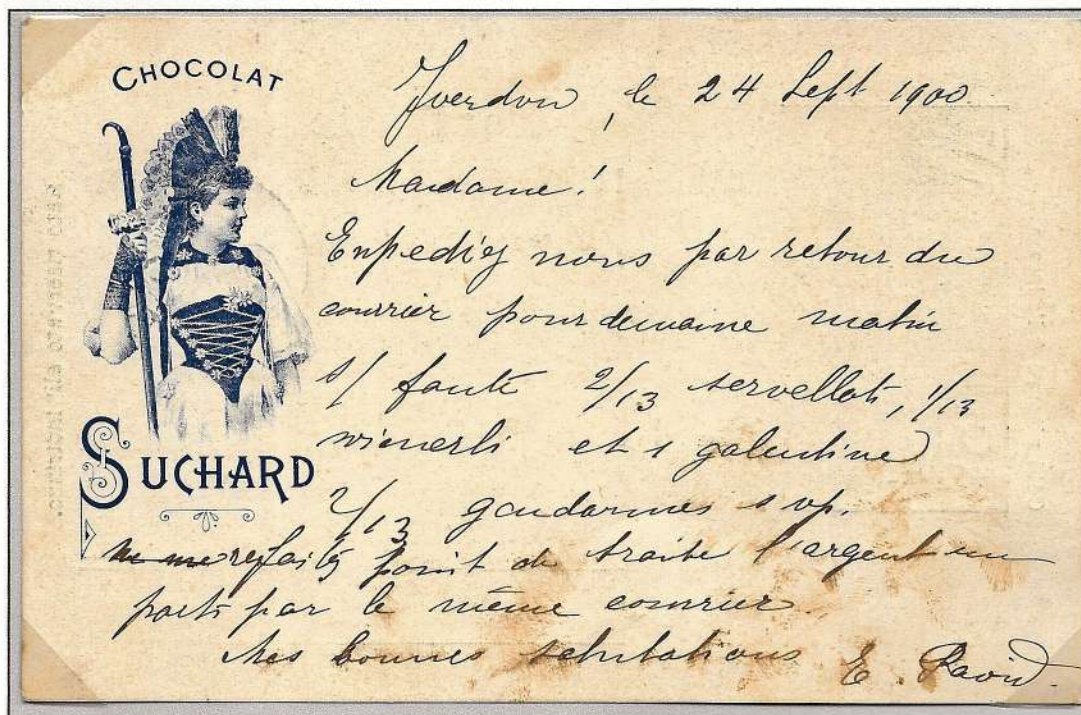 CHOCOLAT
SUCHARD
Yverdon, le 24 Sept 1900
Madame!
Enpediez nous par retour du
courrier pour demaine matin
s/ faute 2/13 servellats, 1/13
wienerli et 1 galentine
2/13 gendarmes s vp.
faites point de traite l'argent
parts par le même courrier.
Mes bonnes salutations E.